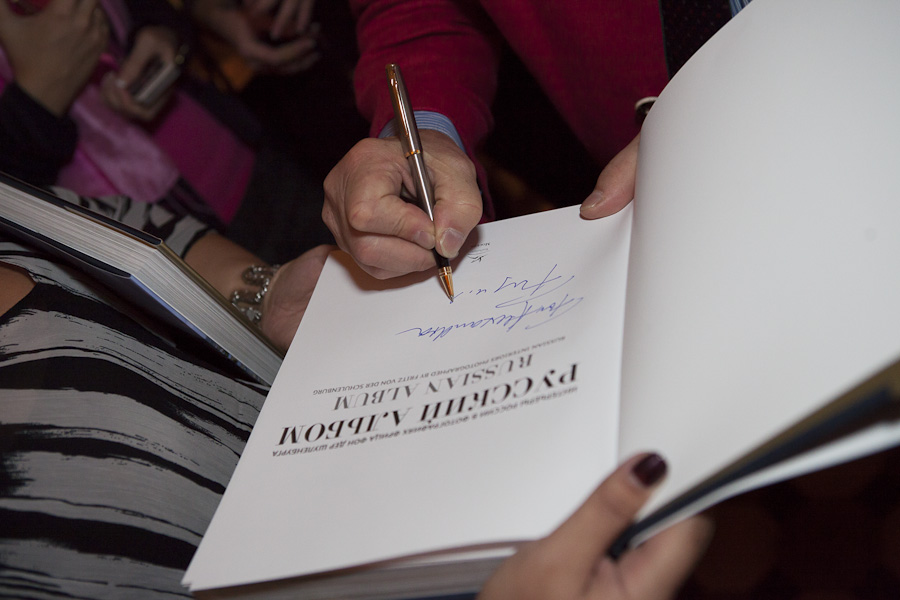 ИНТЕРЬЕРЫ РОССИИ В ФОТОГРАФИЯХ ФРИЦА ФОН ДЕР ШУЛЕНБУРГА
РУССКИЙ АЛЬБОМ
RUSSIAN ALBUM
RUSSIAN INTERIORS PHOTOGRAPHED BY FRITZ VON DER SCHULENBURG
For Alexandra